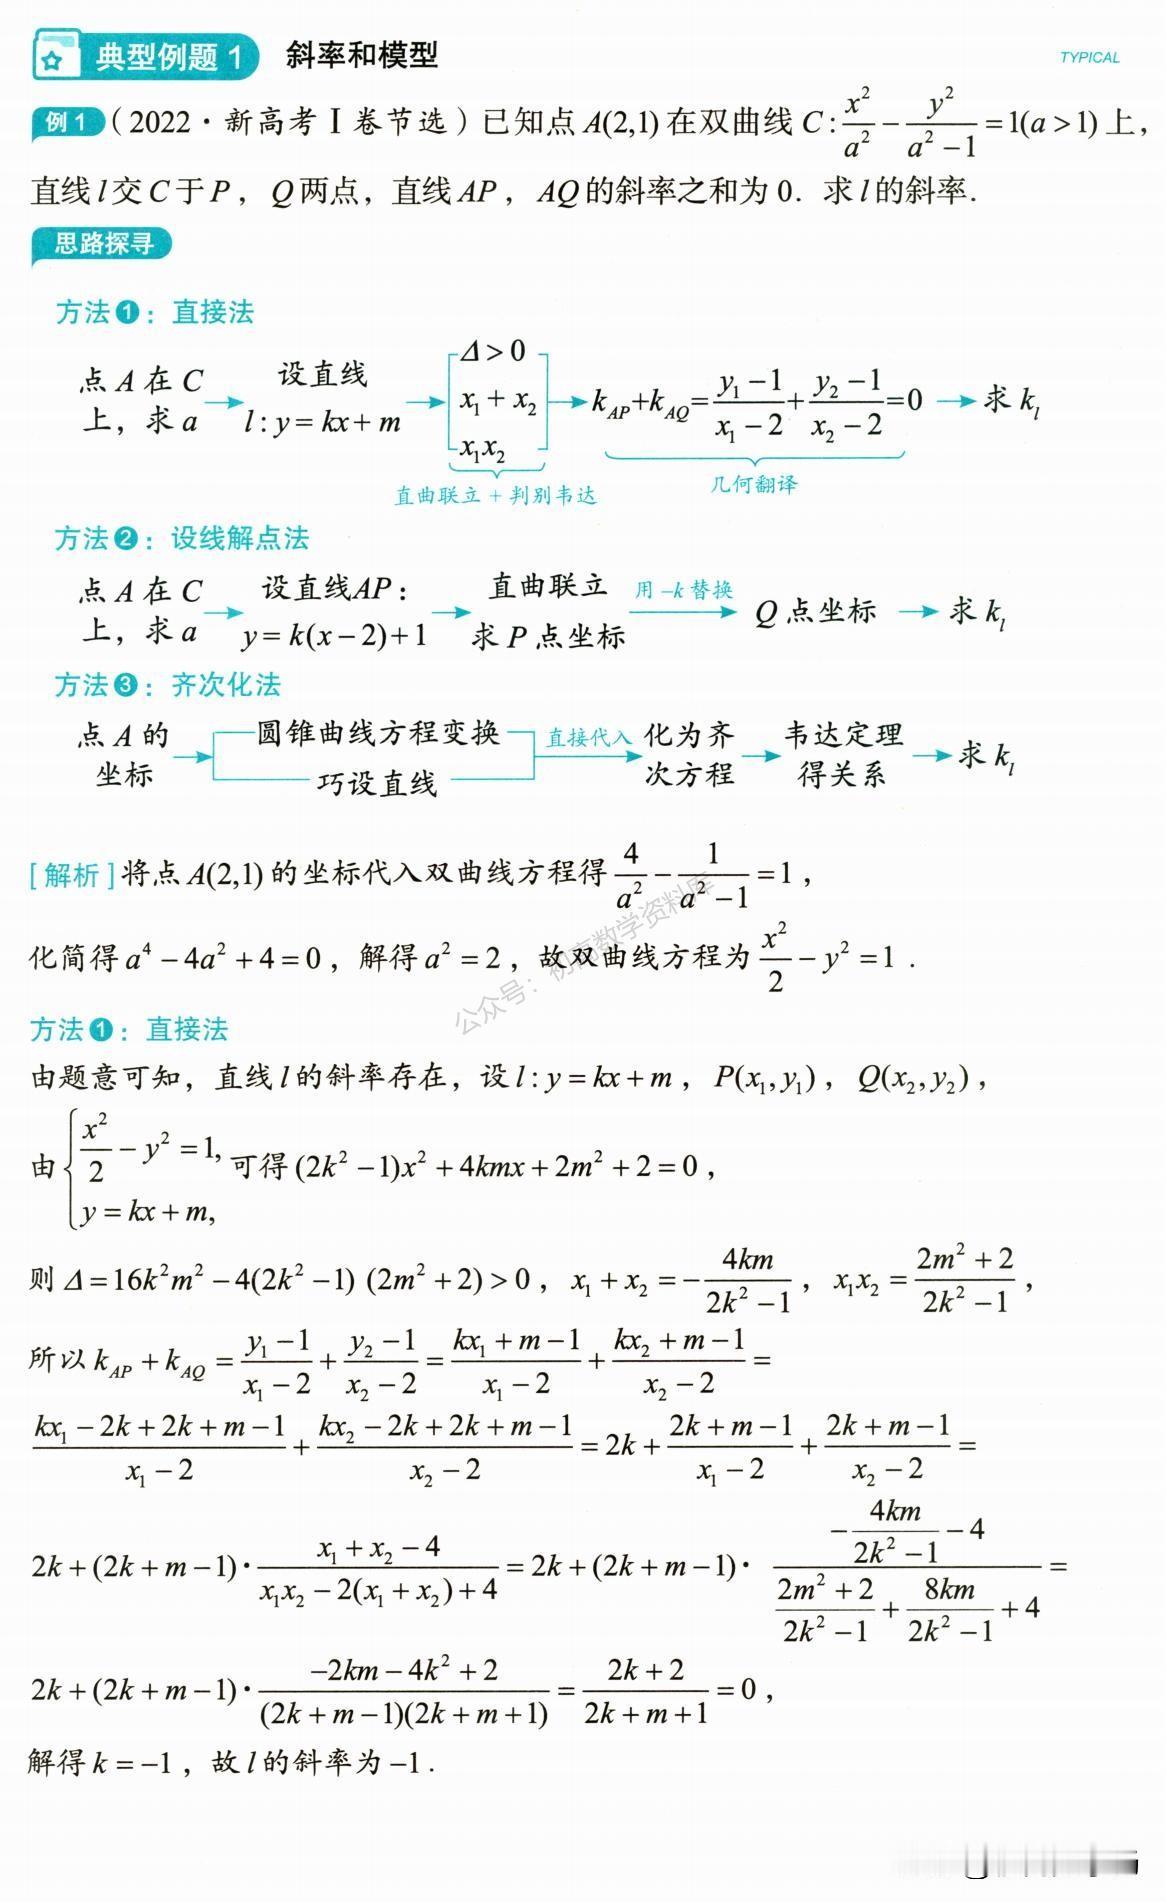 典型例题 1 斜率和模型 TYPICAL
例 1 (2022·新高考Ⅰ卷节选) 已知点 A(2,1) 在双曲线 C: x²/a² − y²/(a²−1) = 1(a > 1) 上,
直线 l 交 C 于 P, Q 两点, 直线 AP, AQ 的斜率之和为 0. 求 l 的斜率.
思路探寻
方法❶: 直接法
点 A 在 C 上, 求 a → 设直线 l: y = kx + m → [Δ > 0 x₁ + x₂ x₁x₂] → k_AP+k_AQ = (y₁ − 1)/(x₁ − 2) + (y₂ − 1)/(x₂ − 2) = 0 → 求 k_l
直曲联立 + 判别韦达 几何翻译
方法❷: 设线解点法
点 A 在 C 上, 求 a → 设直线AP: y = k(x − 2) + 1 → 直曲联立 求 P 点坐标 用 −k 替换 → Q 点坐标 → 求 k_l
方法❸: 齐次化法
点 A 的坐标 → 圆锥曲线方程变换 巧设直线 直接代入 → 化为齐次方程 → 韦达定理得关系 → 求 k_l
[解析] 将点 A(2,1) 的坐标代入双曲线方程得 4/a² − 1/(a² − 1) = 1,
化简得 a⁴ − 4a² + 4 = 0, 解得 a² = 2, 故双曲线方程为 x²/2 − y² = 1.
公众号: 初高数学资料库
方法❶: 直接法
由题意可知, 直线 l 的斜率存在, 设 l: y = kx + m, P(x₁, y₁), Q(x₂, y₂),
由 { x²/2 − y² = 1, y = kx + m, 可得 (2k² − 1)x² + 4kmx + 2m² + 2 = 0,
则 Δ = 16k²m² − 4(2k² − 1) (2m² + 2) > 0, x₁ + x₂ = −4km/(2k² − 1), x₁x₂ = (2m² + 2)/(2k² − 1),
所以 k_AP + k_AQ = (y₁ − 1)/(x₁ − 2) + (y₂ − 1)/(x₂ − 2) = (kx₁ + m − 1)/(x₁ − 2) + (kx₂ + m − 1)/(x₂ − 2) =
(kx₁ − 2k + 2k + m − 1)/(x₁ − 2) + (kx₂ − 2k + 2k + m − 1)/(x₂ − 2) = 2k + (2k + m − 1)/(x₁ − 2) + (2k + m − 1)/(x₂ − 2) =
2k + (2k + m − 1)·(x₁ + x₂ − 4)/(x₁x₂ − 2(x₁ + x₂) + 4) = 2k + (2k + m − 1)·(−4km/(2k² − 1) − 4)/((2m² + 2)/(2k² − 1) + 8km/(2k² − 1) + 4) =
2k + (2k + m − 1)·(−2km − 4k² + 2)/((2k + m − 1)(2k + m + 1)) = (2k + 2)/(2k + m + 1) = 0,
解得 k = −1, 故 l 的斜率为 −1.